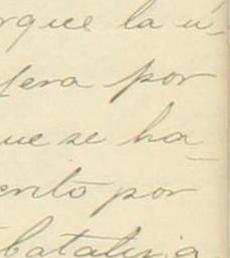 rque la u-
fera por
ue se ha
ento por